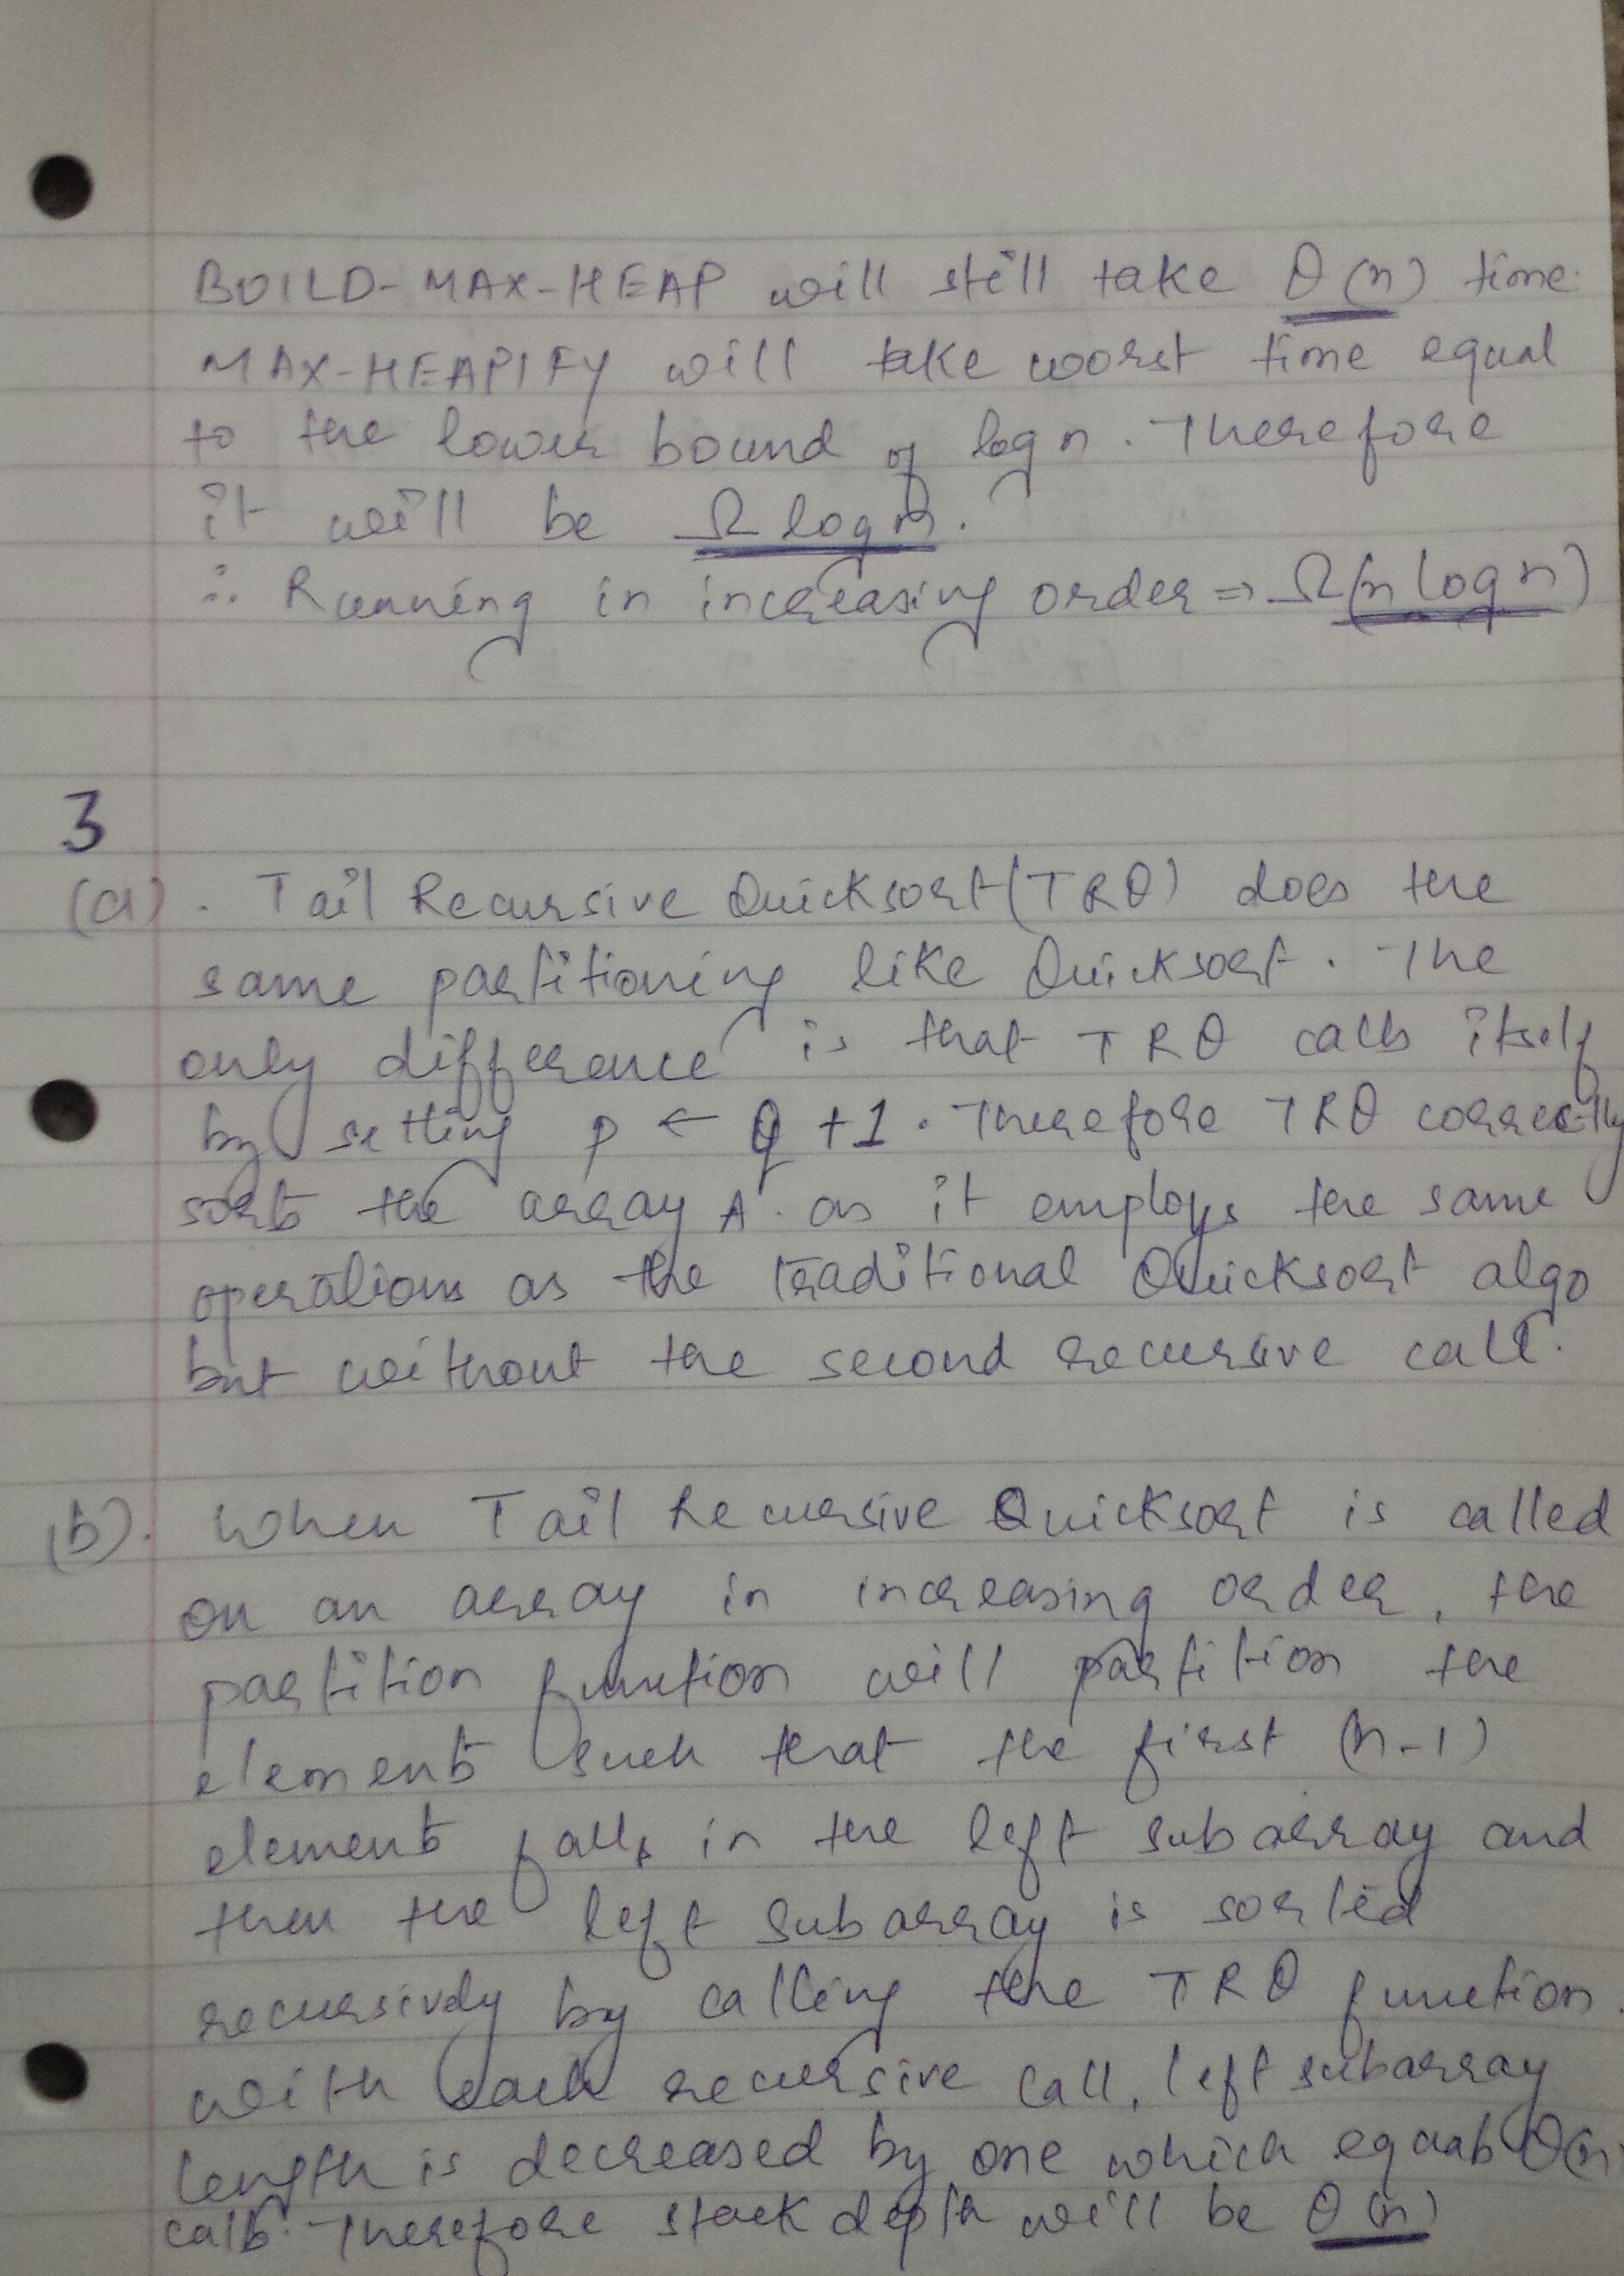 BUILD-MAX-HEAP will still take θ(n) time.
MAX-HEAPIFY will take worst time equal
to the lower bound of log n. Therefore
it will be Ω log n.
∴ Running in increasing order ⇒ Ω(n log n)
3
(a). Tail Recursive Quicksort (TRQ) does the
same partitioning like Quicksort. The
only difference is that TRQ calls itself
by setting p ← q + 1. Therefore TRQ correctly
sorts the array A. as it employs the same
operations as the traditional Quicksort algo
but without the second recursive call.
(b). When Tail Recursive Quicksort is called
on an array in increasing order, the
partition function will partition the
elements such that the first (n-1)
elements falls in the left subarray and
then the left subarray is sorted
recursively by calling the TRQ function.
with each recursive call, left subarray
length is decreased by one which equals θ(n)
calls. Therefore stack depth will be θ(n)